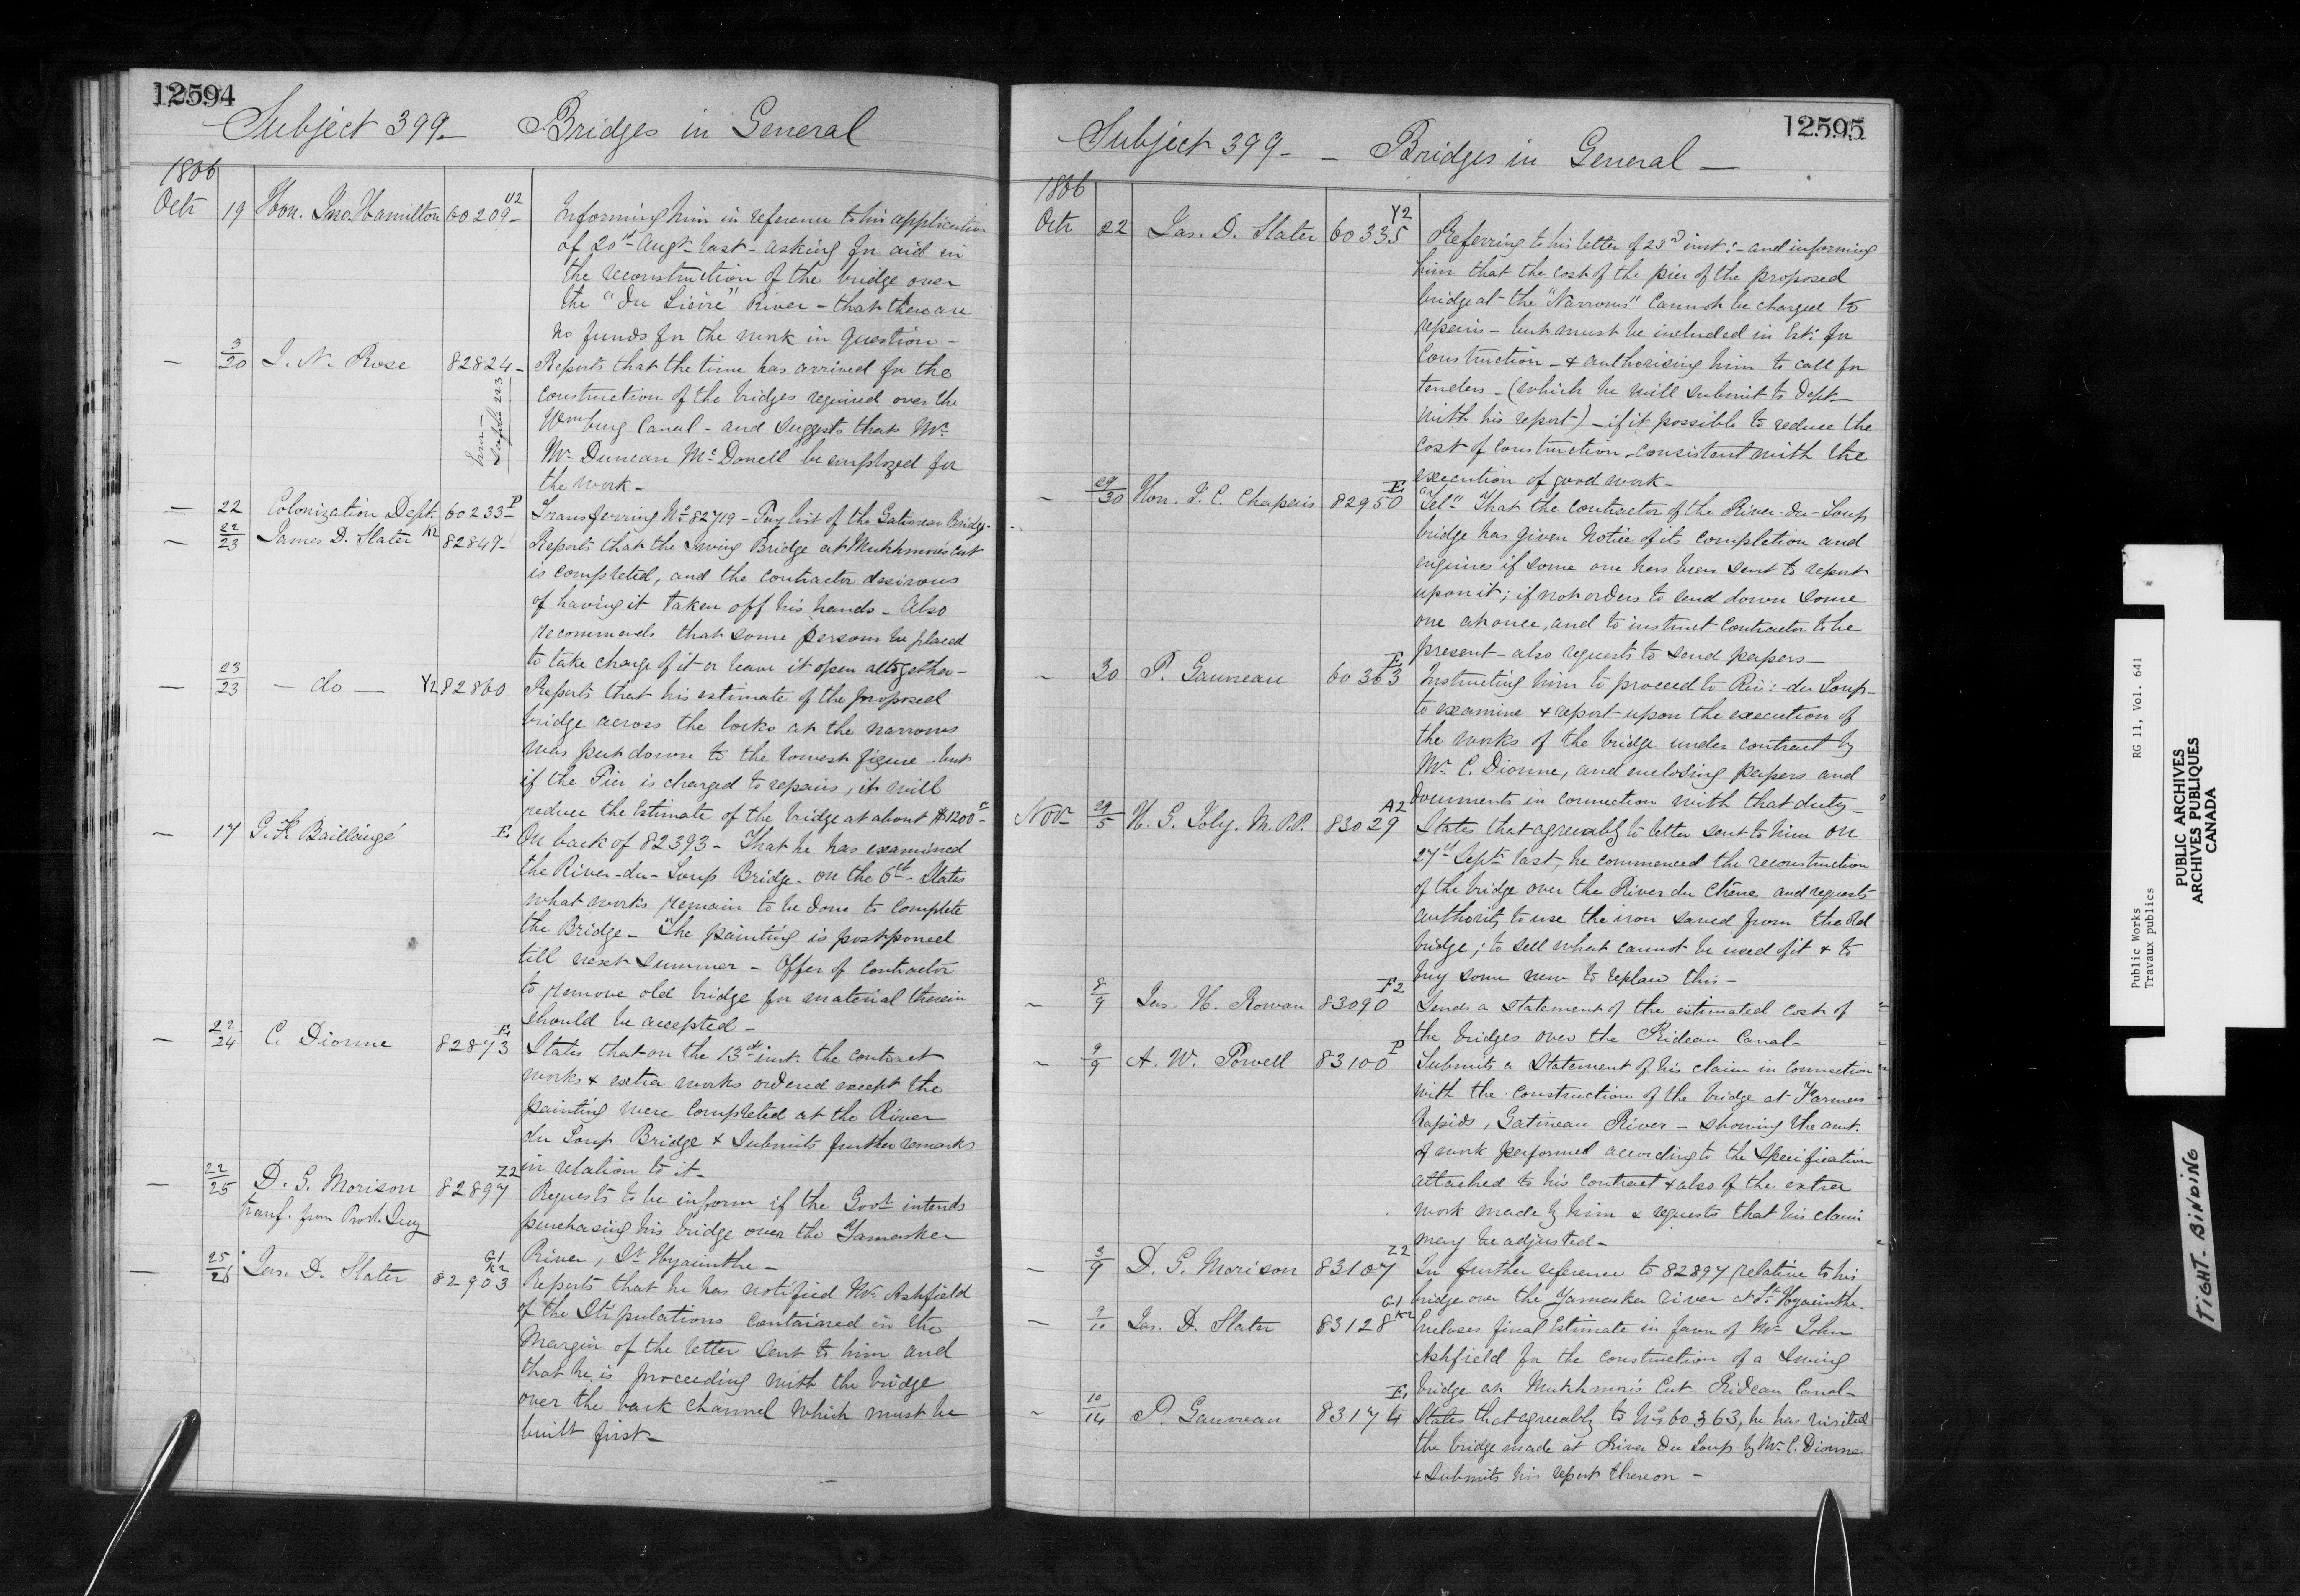 12594
Subject 399- Bridges in General
1866
Octr 19 Hon. Jno. Hamilton 60209- V2 Informing him in reference to his application
of 20th Augt last - asking for aid in
the reconstruction of the bridge over
the "Du Lièvre" River - that there are
no funds for the work in question -
- 3/20 J. N. Rose 82824- Reports that the time has arrived for the
construction of the bridges required over the
Wmburg Canal - and suggests that Mr
Mr Duncan McDonell be employed for
the work -
- 22 Colonization Dept. 60233- P Transferring No 82719 - Pay list of the Gatineau Bridge -
- 22/23 James D. Slater K2 82849- Reports that the Swing Bridge at Mutchmor's Cut
is completed, and the contractor desirous
of having it taken off his hands - Also
recommends that some person be placed
to take charge of it or leave it open altogether -
- 23/23 - do - Y2 82860 Reports that his estimate of the proposed
bridge across the locks at the narrows
was put down to the lowest figure - but
if the Pier is charged to repairs, it will
reduce the Estimate of the bridge at about $1200 -
- 17 G. F. Baillairgé E1 On back of 82393 - That he has examined
the River-du-Loup Bridge - on the 6th - States
what works remain to be done to complete
the Bridge - The painting is postponed
till next summer - Offer of Contractor
to remove old bridge for material therein
should be accepted -
- 22/24 C. Dionne 82873 E1 States that on the 13th inst. the contract
works & extra works ordered except the
painting were completed at the River
du Loup Bridge & Submits further remarks
in relation to it -
- 22/25 D. G. Morison 82897 Z2 Requests to be inform if the Govt intends
transf. from Provl. Secy purchasing his bridge over the Yamaska
River, St Hyacinthe -
- 25/26 Jas. D. Slater 82903 G1 K2 Reports that he has notified Mr Ashfield
of the Stipulations contained in the
Margin of the letter sent to him and
that he is proceeding with the bridge
over the back channel which must be
built first -
12595
Subject 399 - - Bridges in General -
1866
Octr 22 Jas. D. Slater 60335 Y2 Referring to his letter of 23d inst: - and informing
him that the cost of the pier of the proposed
bridge at the "Narrows" cannot be charged to
repairs - but must be included in Est: for
Construction - & authorising him to call for
tenders - (which he will submit to Dept -
with his report) - if it possible to reduce the
cost of construction consistent with the
execution of good work -
- 29/30 Hon. J. C. Chapais 82950 E1 "Tel" That the Contractor of the River-du-Loup
bridge has given notice of its completion and
enquires if some one has been sent to report
upon it; if not orders to send down some
one at once, and to instruct Contractor to be
present - also requests to send papers -
- 30 P. Gauvreau 60363 E1 Instructing him to proceed to Riv: du Loup -
to examine & report upon the execution of
the works of the bridge under contract by
Mr C. Dionne, and enclosing papers and
documents in connection with that duty -
Novr 29/5 H. G. Joly. M.P.P. 83029 A2 States that agreeably to letter sent to him on
27th Septr last, he commenced the reconstruction
of the bridge over the River du Chêne and requests
authority to use the iron saved from the old
bridge; to sell what cannot be used of it & to
buy some new to replace this -
- 8/9 Jas. H. Rowan 83090 F2 Sends a statement of the estimated cost of
the bridges over the Rideau Canal -
- 9/9 A. W. Powell 83100 P Submits a Statement of his claim in connection
with the construction of the bridge at Farmers
Rapids, Gatineau River - showing the amt.
of work performed according to the specification
attached to his contract & also of the extra
work made by him & requests that his claim
may be adjusted -
- 3/9 D. G. Morison 83107 Z2 In further reference to 82897 relative to his
bridge over the Yamaska river at St Hyacinthe -
- 9/10 Jas. D. Slater 83128 G1 K2 Encloses final Estimate in favor of Mr John
Ashfield for the construction of a Swing
bridge at Mutchmor's Cut Rideau Canal -
- 10/14 P. Gauvreau 83174 E1 States that agreeably to No 60363, he has visited
the bridge made at River du Loup by Mr C. Dionne
& Submits his report thereon -
Public Works RG 11, Vol. 641
Travaux publics
PUBLIC ARCHIVES
ARCHIVES PUBLIQUES
CANADA
TIGHT BINDING